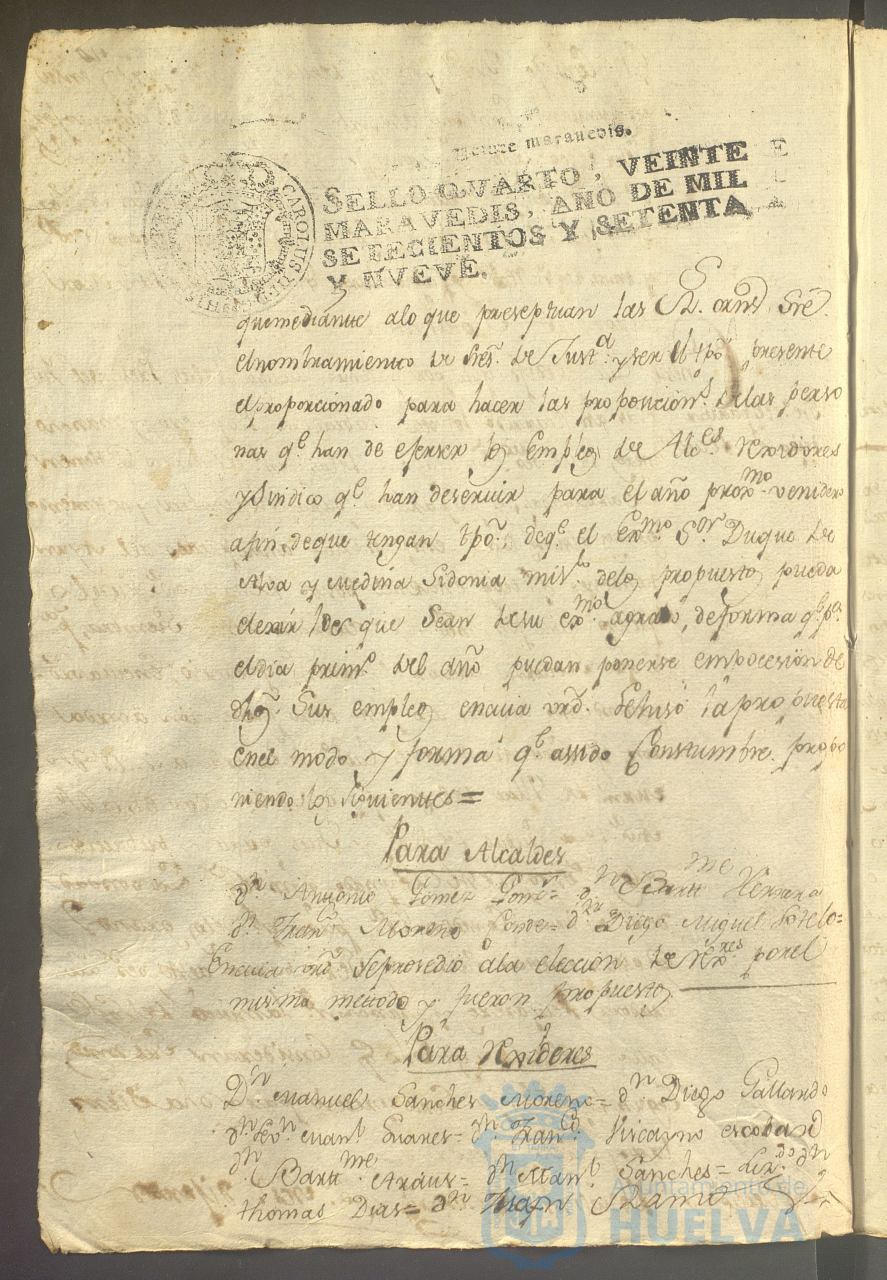 maravedis.
SELLO QVARTO, VEINTE
MARAVEDIS, AÑO DE MIL
SETECIENTOS Y SETENTA
Y NVEVE.
CAROLUS
que mediante alo que preseptuan las Rs. ornes sre
el nombramiento de sres. de Justa. y ser el tpo presente
el proporcionado para hacer las proposicions. de las perso
nas qe. han de eserser los Empleos de Alces. Rexidores
y Sindico qe. han deservir para el año proxmo. venidero
afin deque tengan tpo. deqe. el Exmo. Sor. Duque de
Alva y Medina Sidonia mi sr. delos propuestos pueda
elexir los que Sean desu exma. agrado, deforma qe. pa.
el dia primo. del año puedan ponerse emposecion de
dhos. Sus empleos encuia vrd. Sehiso la propuesta
enel modo y forma qe. assido Constumbre propo
niendo los siguientes =
Para Alcaldes
dn. Antonio Gomez = dn. Bartme Herrera
dn. Franco. Moreno Conde = dn. Diego Miguel Sotelo =
Encuia vrd. Seprosedio ala eleccion de Rexres porel
mismo metodo y fueron propuestos
Para Rexidores
Dn. Manuel Sanches Moreno = dn. Diego Gallardo
dn. Juan Suares = dn. Franco. Viscayno escobar
dn. Bartme. Araus = dn. Manl. Sanches = Lizdo. dn.
thomas Dias = dn. Juan Ramos
Ayuntamiento de
HUELVA